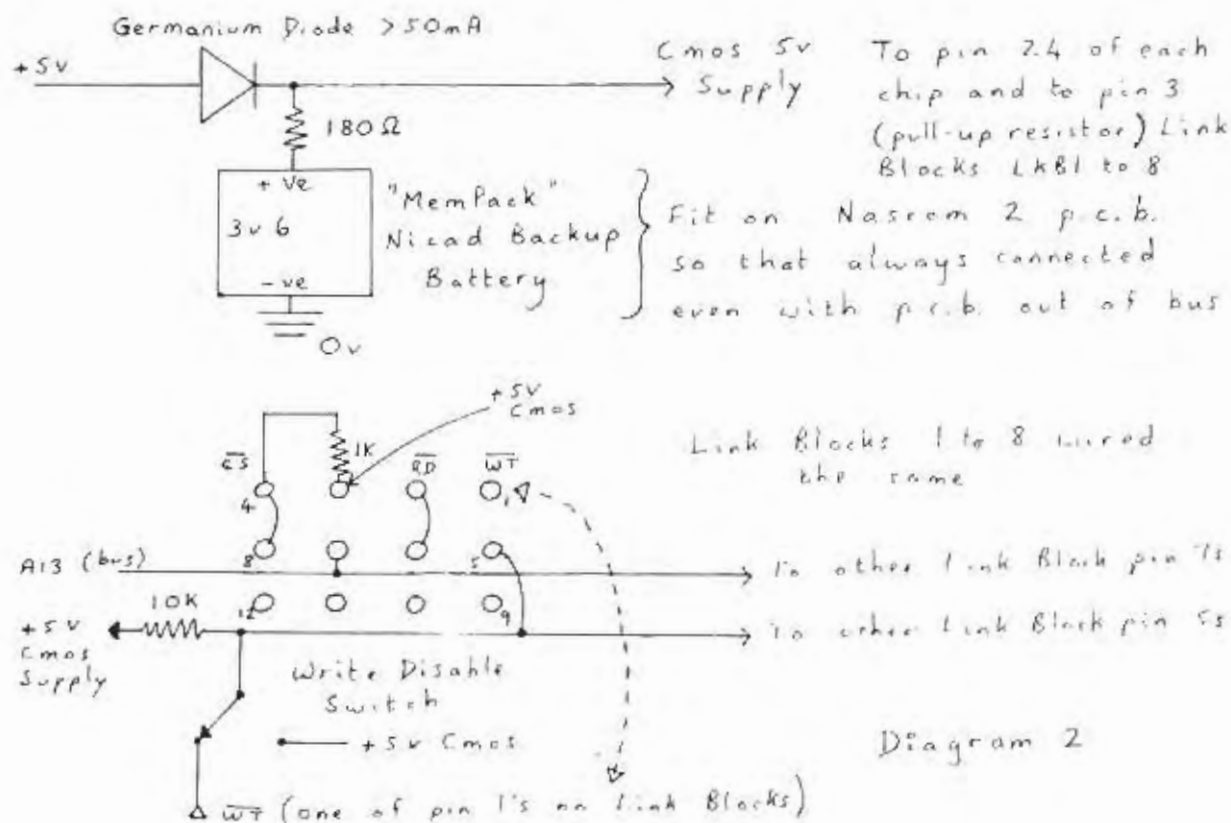 Germanium Diode >50mA
+5v
Cmos 5v
Supply
To pin 24 of each
chip and to pin 3
(pull-up resistor) Link
Blocks LKB1 to 8
180Ω
+ve
3v6
-ve
"MemPack"
Nicad Backup
Battery
Fit on Nasrom 2 p.c.b.
so that always connected
even with p.c.b. out of bus
0v
+5v
Cmos
1K
CS
RD
WT
4
1
Link Blocks 1 to 8 wired
the same
A13 (bus)
8
5
To other Link Block pin 7s
10K
12
9
+5v
Cmos
Supply
To other Link Block pin 5s
Write Disable
Switch
+5v Cmos
Diagram 2
WT (one of pin 1's on Link Blocks)